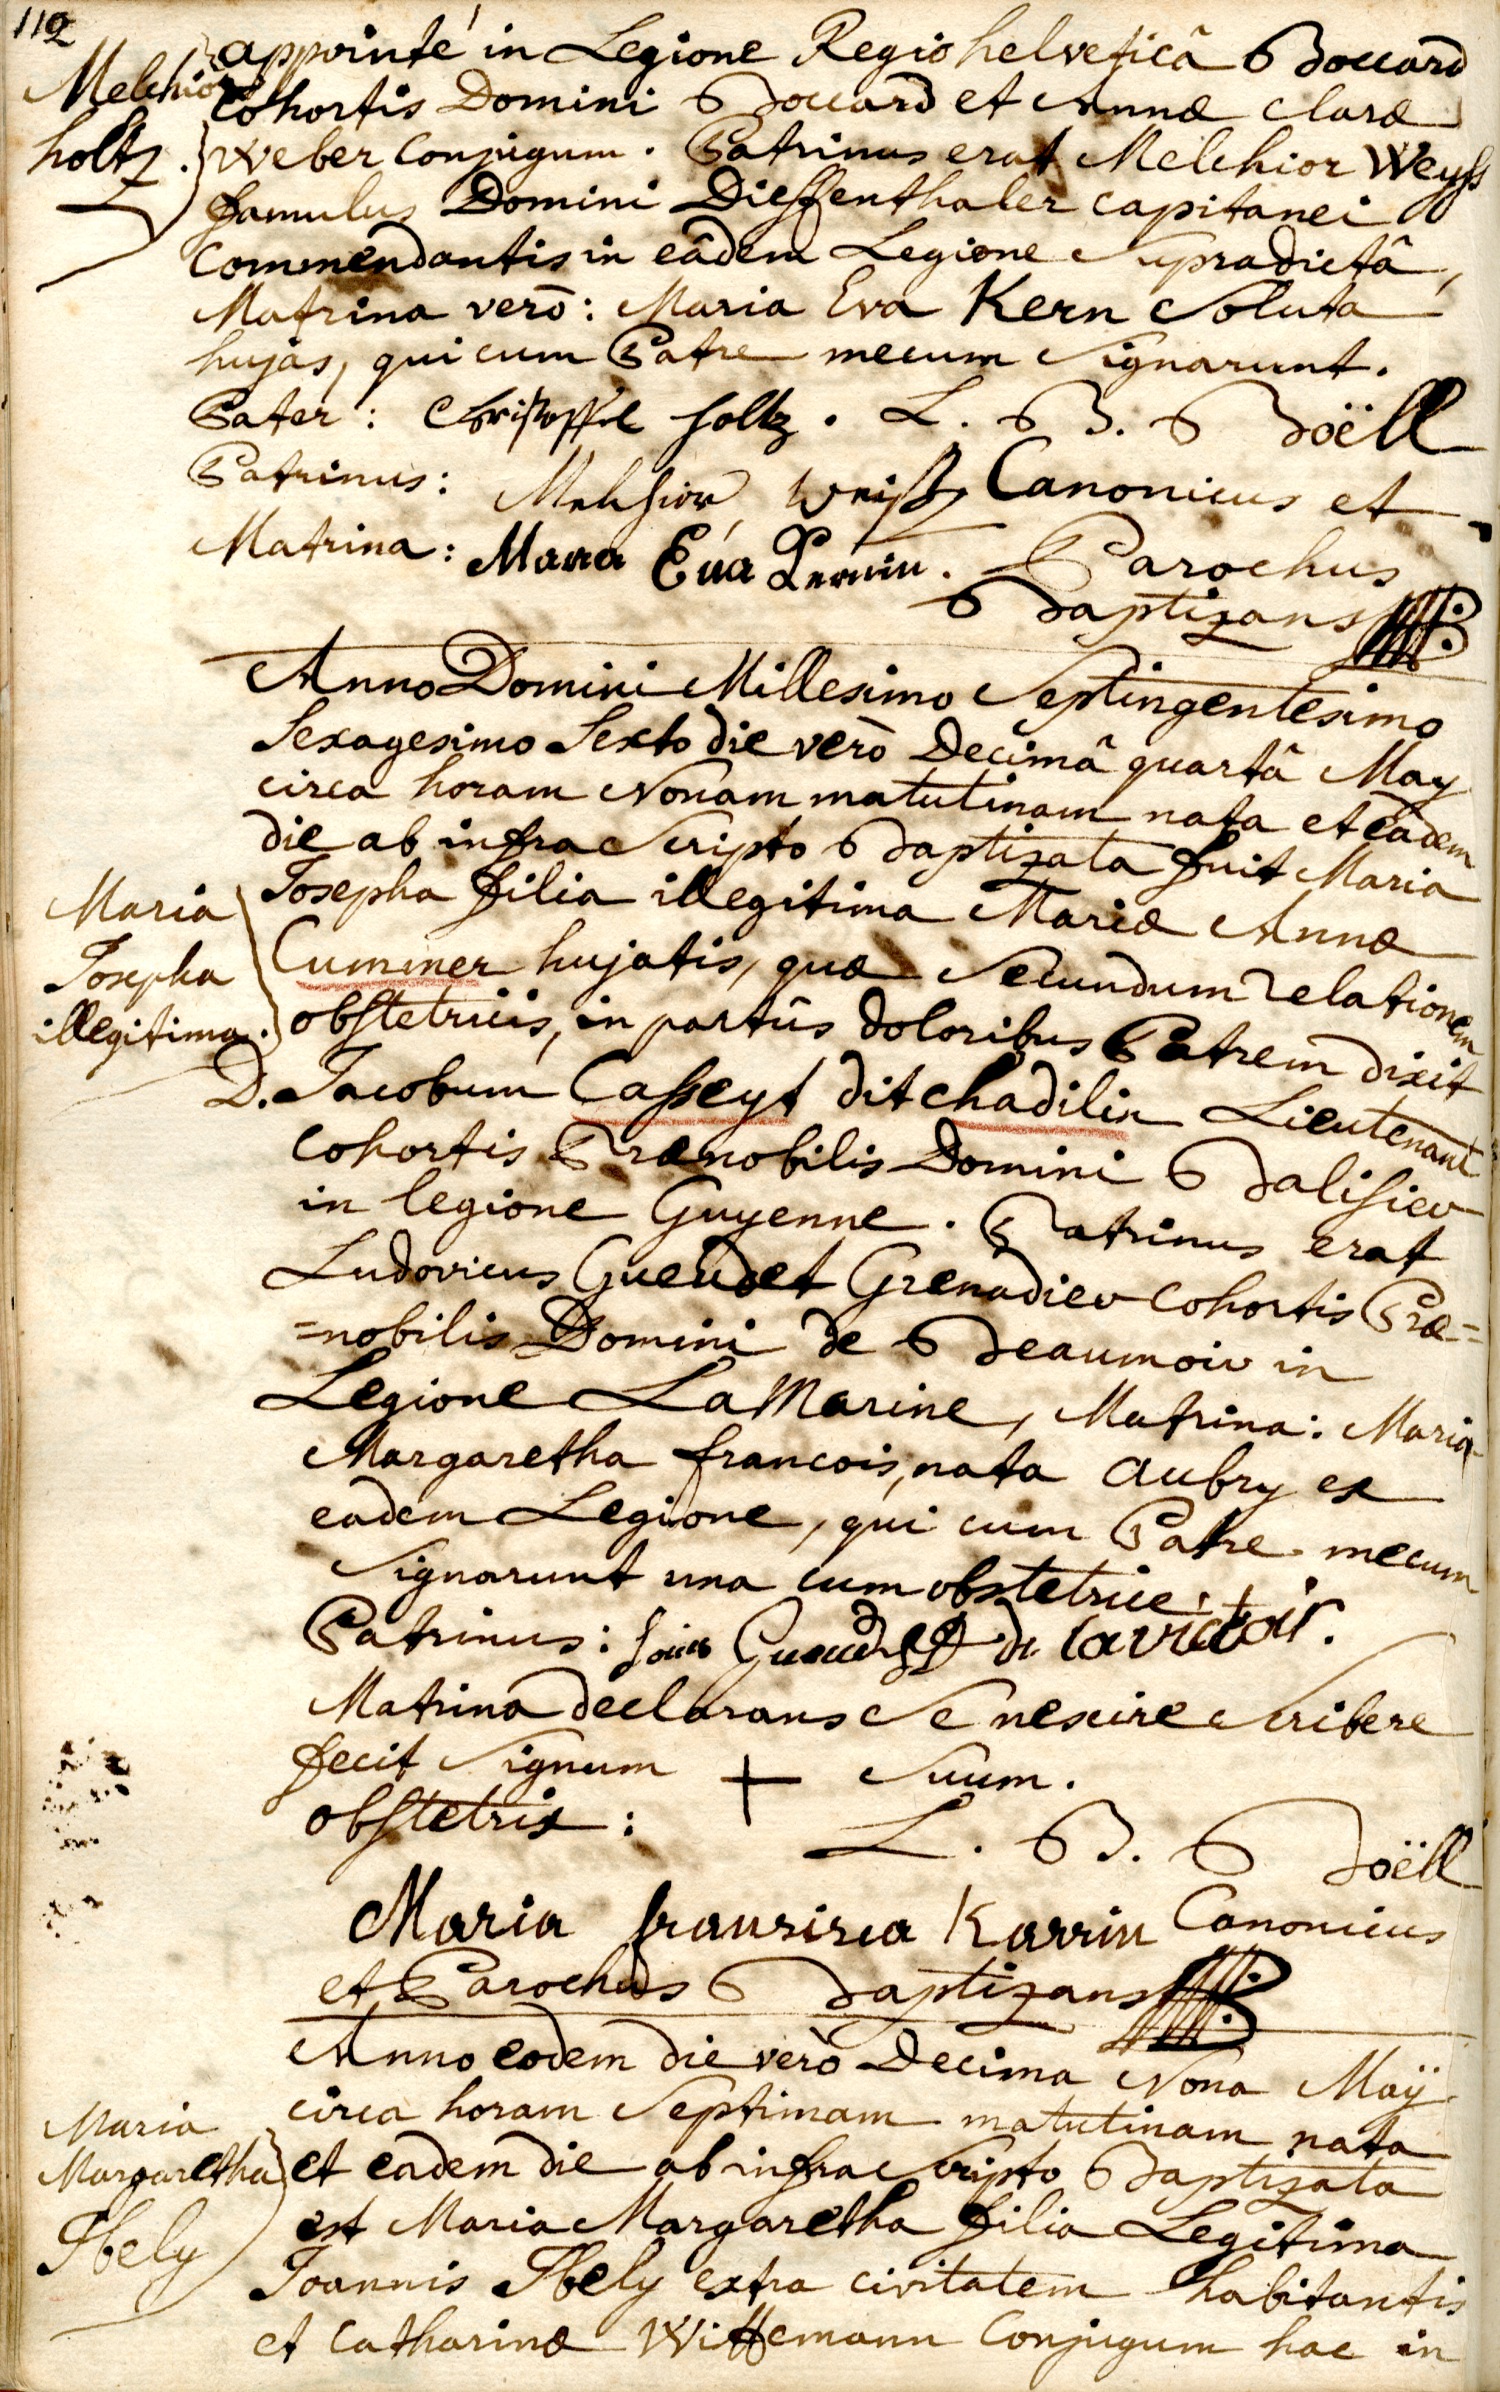 112
appointé in Legione Regio helveticâ Boccard
Melchior
Cohortis Domini Boccard et Annæ Claræ
holtz.
Weber Conjugum. Patrinus erat Melchior Weyss
famulus Domini Dieffenthaler capitanei
Commendantis in eâdem Legione Supradictâ,
Matrina verò: Maria Eva Kern Soluta
hujas, qui cum Patre mecum Signarunt.
Pater: Christoffel holtz. L. B. Boëll
Patrinus: Melchior Weiss Canonicus et
Matrina: Maria Eva Kernin. Parochus
Baptizans
Anno Domini Millesimo Septingentesimo
Sexagesimo Sexto die verò Decimâ quartâ May
circa horam Nonam matutinam nata et eâdem
die ab infra Scripto Baptizata fuit Maria
Maria
Josepha filia illegitima Mariæ Annæ
Josepha
Cummer hujatis, quæ Secundum relationem
illegitima.
obstetricis, in partûs doloribus Patrem dixit
D. Jacobum Casseyt dit chadilin Lieutenant
Cohortis Prænobilis Domini Balisier
in legione Guyenne. Patrinus erat
Ludovicus Gueudet Grenadier Cohortis Præ=
=nobilis Domini de Beaumoir in
Legione La Marine, Matrina: Maria
Margaretha francois, nata Aubry ex
eadem Legione, qui cum Patre mecum
Signarunt una cum obstetrice.
Patrinus: Louis Gueudet de lavictoir.
Matrina declarans Se nescire Scribere
fecit Signum + Suum.
obstetrix:
L. B. Boëll
Maria francisca Karrin Canonicus
et Parochus Baptizans
Anno eodem die verò Decima Nona Maÿ
circa horam Septimam matutinam nata
Maria
Margaretha
et eadem die ab infra Scripto Baptizata
est Maria Margaretha filia Legitima
Ibely
Joannis Ibely extra civitatem habitantis
et Catharinæ Wittemann Conjugum hac in